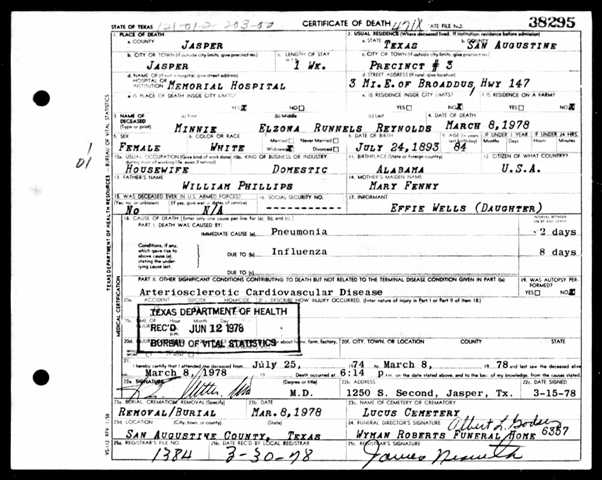 STATE OF TEXAS CERTIFICATE OF DEATH 471X STATE FILE NO. 38295
1. PLACE OF DEATH 2. USUAL RESIDENCE (Where deceased lived. If institution: residence before admission)
a. COUNTY JASPER a. STATE TEXAS b. COUNTY SAN AUGUSTINE
b. CITY OR TOWN (If outside city limits, give precinct no.) JASPER c. LENGTH OF STAY 1 WK. c. CITY OR TOWN (If outside city limits, give precinct no.) PRECINCT # 3
d. NAME OF HOSPITAL OR INSTITUTION MEMORIAL HOSPITAL d. STREET ADDRESS 3 MI.E.OF BROADDUS, HWY 147
e. IS PLACE OF DEATH INSIDE CITY LIMITS? e. IS RESIDENCE INSIDE CITY LIMITS? f. IS RESIDENCE ON A FARM?
YES X NO YES NO X YES NO X
3. NAME OF DECEASED (Type or print) (a) First (b) Middle (c) Last 4. DATE OF DEATH
MINNIE ELZONA RUNNELS REYNOLDS MARCH 8,1978
5. SEX 6. COLOR OR RACE 7. Married Never Married Widowed X Divorced 8. DATE OF BIRTH 9. AGE IF UNDER 1 YEAR IF UNDER 24 HRS.
FEMALE WHITE JULY 24,1893 84
10a. USUAL OCCUPATION 10b. KIND OF BUSINESS OR INDUSTRY 11. BIRTHPLACE (State or foreign country) 12. CITIZEN OF WHAT COUNTRY?
HOUSEWIFE DOMESTIC ALABAMA U.S.A.
13. FATHER'S NAME 14. MOTHER'S MAIDEN NAME
WILLIAM PHILLIPS MARY FENNY
15. WAS DECEASED EVER IN U.S. ARMED FORCES? 16. SOCIAL SECURITY NO. 17. INFORMANT
NO N/A ---------- EFFIE WELLS (DAUGHTER)
18. CAUSE OF DEATH [Enter only one cause per line for (a), (b), and (c).]
PART I. DEATH WAS CAUSED BY:
IMMEDIATE CAUSE (a) Pneumonia 2 days
Conditions, if any, which gave rise to above cause (a), stating the underlying cause last.
DUE TO (b) Influenza 8 days
DUE TO (c)
PART II. OTHER SIGNIFICANT CONDITIONS CONTRIBUTING TO DEATH BUT NOT RELATED TO THE TERMINAL DISEASE CONDITION GIVEN IN PART I(a) 19. WAS AUTOPSY PERFORMED?
Arteriosclerotic Cardiovascular Disease YES NO X
20a. ACCIDENT SUICIDE HOMICIDE 20b. DESCRIBE HOW INJURY OCCURRED. (Enter nature of injury in Part I or Part II of item 18.)
TEXAS DEPARTMENT OF HEALTH
REC'D JUN 12 1978
BUREAU OF VITAL STATISTICS
20f. CITY, TOWN, OR LOCATION COUNTY STATE
21. I hereby certify that I attended the deceased from July 25, 1974 to March 8, 1978 and last saw the deceased alive
March 8, 1978 Death occurred at 6:14 P m. on the date stated above, and to the best of my knowledge, from the causes stated.
22a. SIGNATURE (Degree or title) 22b. ADDRESS 22c. DATE SIGNED
M.D. 1250 S. Second, Jasper, Tx. 3-15-78
23a. BURIAL, CREMATION, REMOVAL (Specify) 23b. DATE 23c. NAME OF CEMETERY OR CREMATORY
REMOVAL/BURIAL MAR.8,1978 LUCUS CEMETERY
23d. LOCATION (City, town, or county) (State) 24. FUNERAL DIRECTOR'S SIGNATURE
SAN AUGUSTINE COUNTY, TEXAS WYMAN ROBERTS FUNERAL HOME 6357
25a. REGISTRAR'S FILE NO. 25b. DATE REC'D BY LOCAL REGISTRAR 25c. REGISTRAR'S SIGNATURE
1384 3-30-78
TEXAS DEPARTMENT OF HEALTH RESOURCES BUREAU OF VITAL STATISTICS
MEDICAL CERTIFICATION